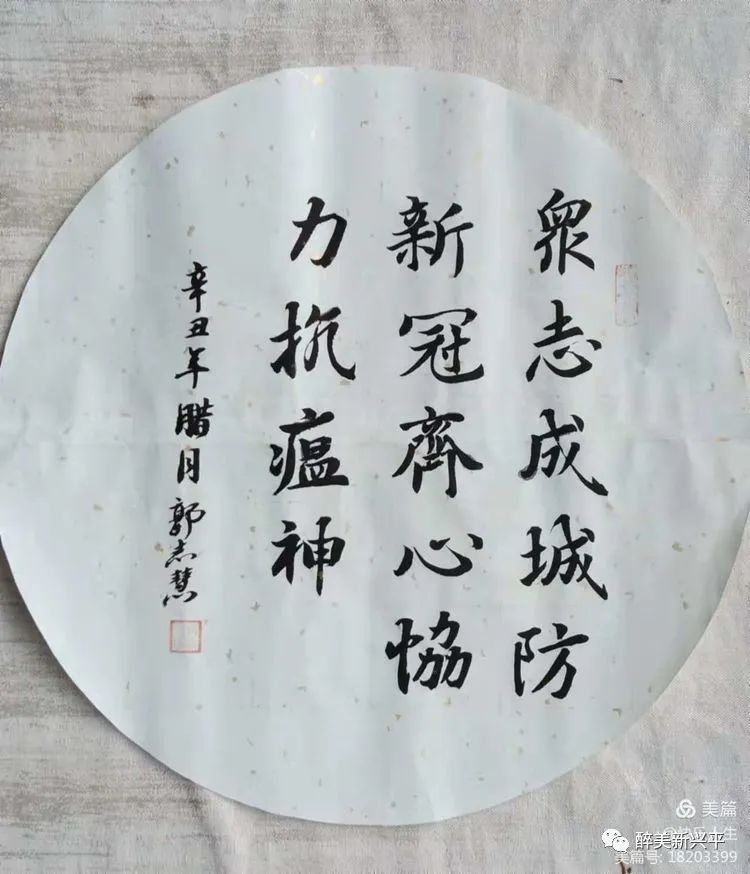 眾志成城防
新冠齊心恊
力抗瘟神
辛丑年腊月郭志慧
美篇
醉美新兴平
美篇号: 18203399